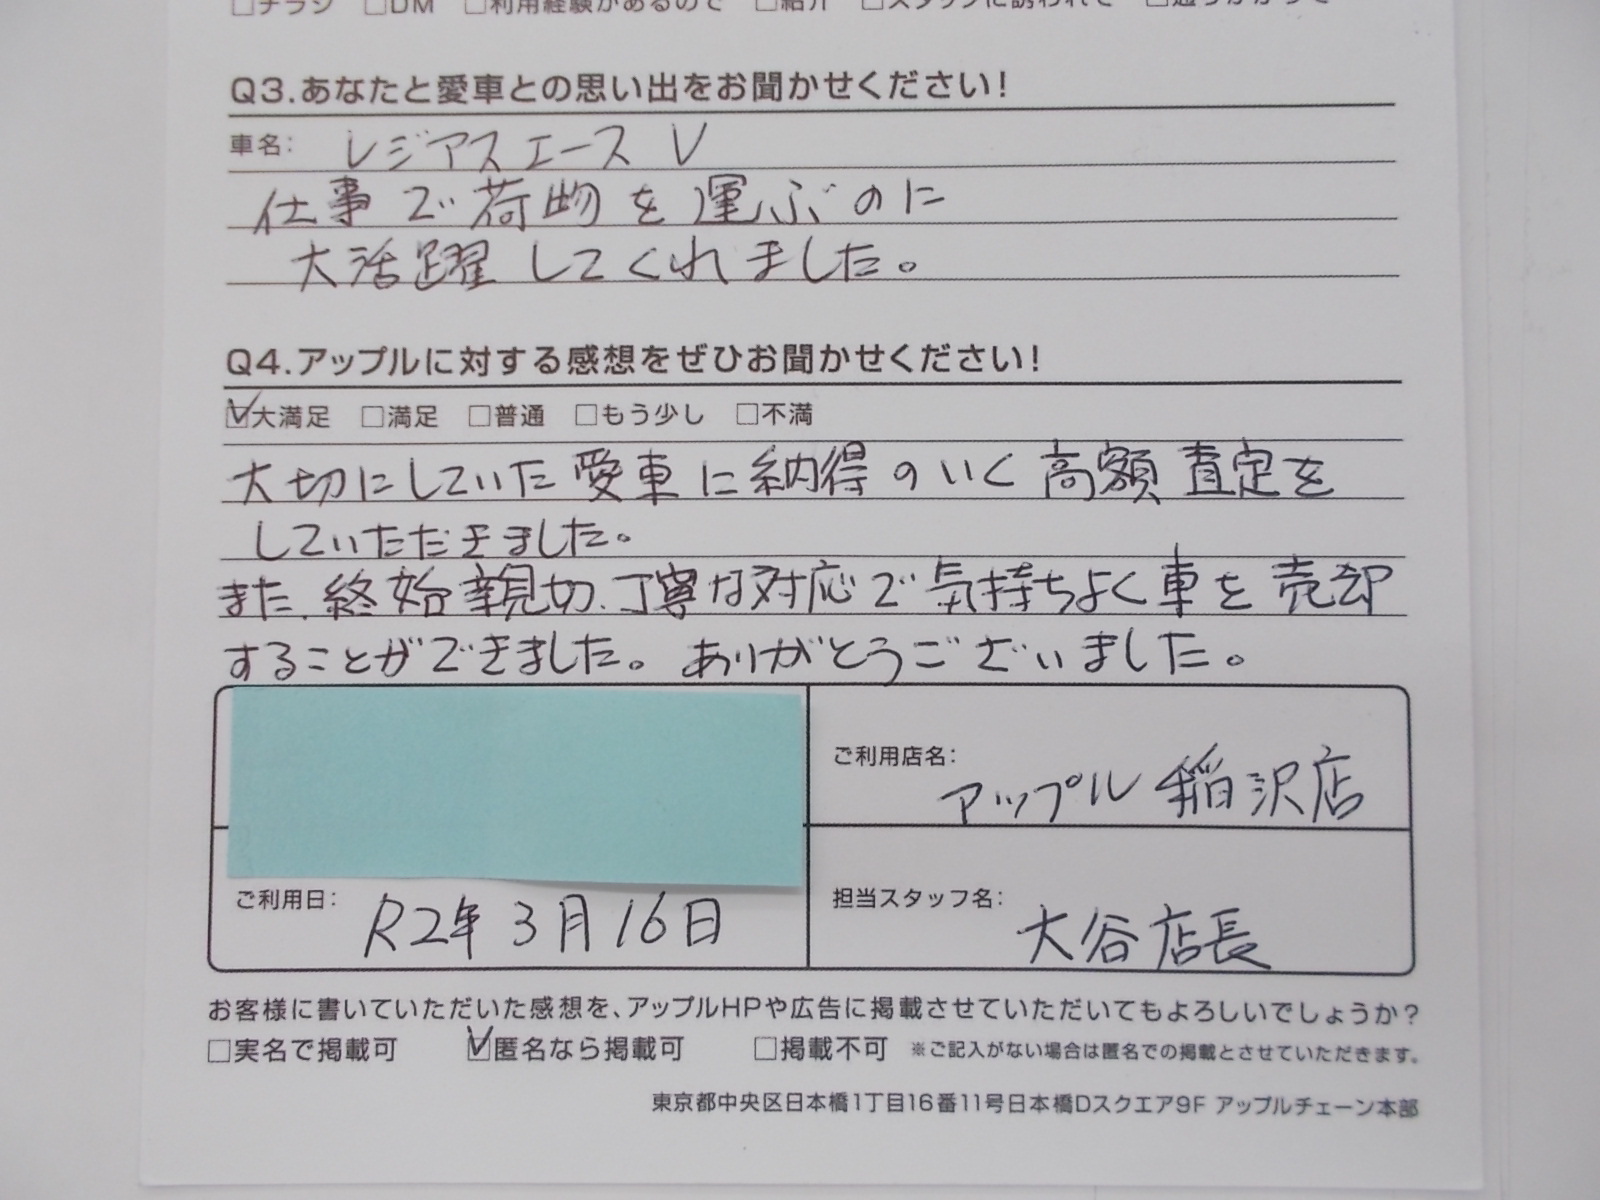 □チラシ □DM □利用経験があるので □紹介 □スタッフに誘われて □通りがかって
Q3.あなたと愛車との思い出をお聞かせください!
車名: レジアスエース V
仕事で荷物を運ぶのに
大活躍してくれました。
Q4.アップルに対する感想をぜひお聞かせください!
☑大満足 □満足 □普通 □もう少し □不満
大切にしていた愛車に納得のいく高額査定を
していただきました。
また、終始親切、丁寧な対応で気持ちよく車を売却
することができました。ありがとうございました。
ご利用店名:
アップル稲沢店
ご利用日: R2年3月16日
担当スタッフ名:
大谷店長
お客様に書いていただいた感想を、アップルHPや広告に掲載させていただいてもよろしいでしょうか?
□実名で掲載可 ☑匿名なら掲載可 □掲載不可 ※ご記入がない場合は匿名での掲載とさせていただきます。
東京都中央区日本橋1丁目16番11号日本橋Dスクエア9F アップルチェーン本部